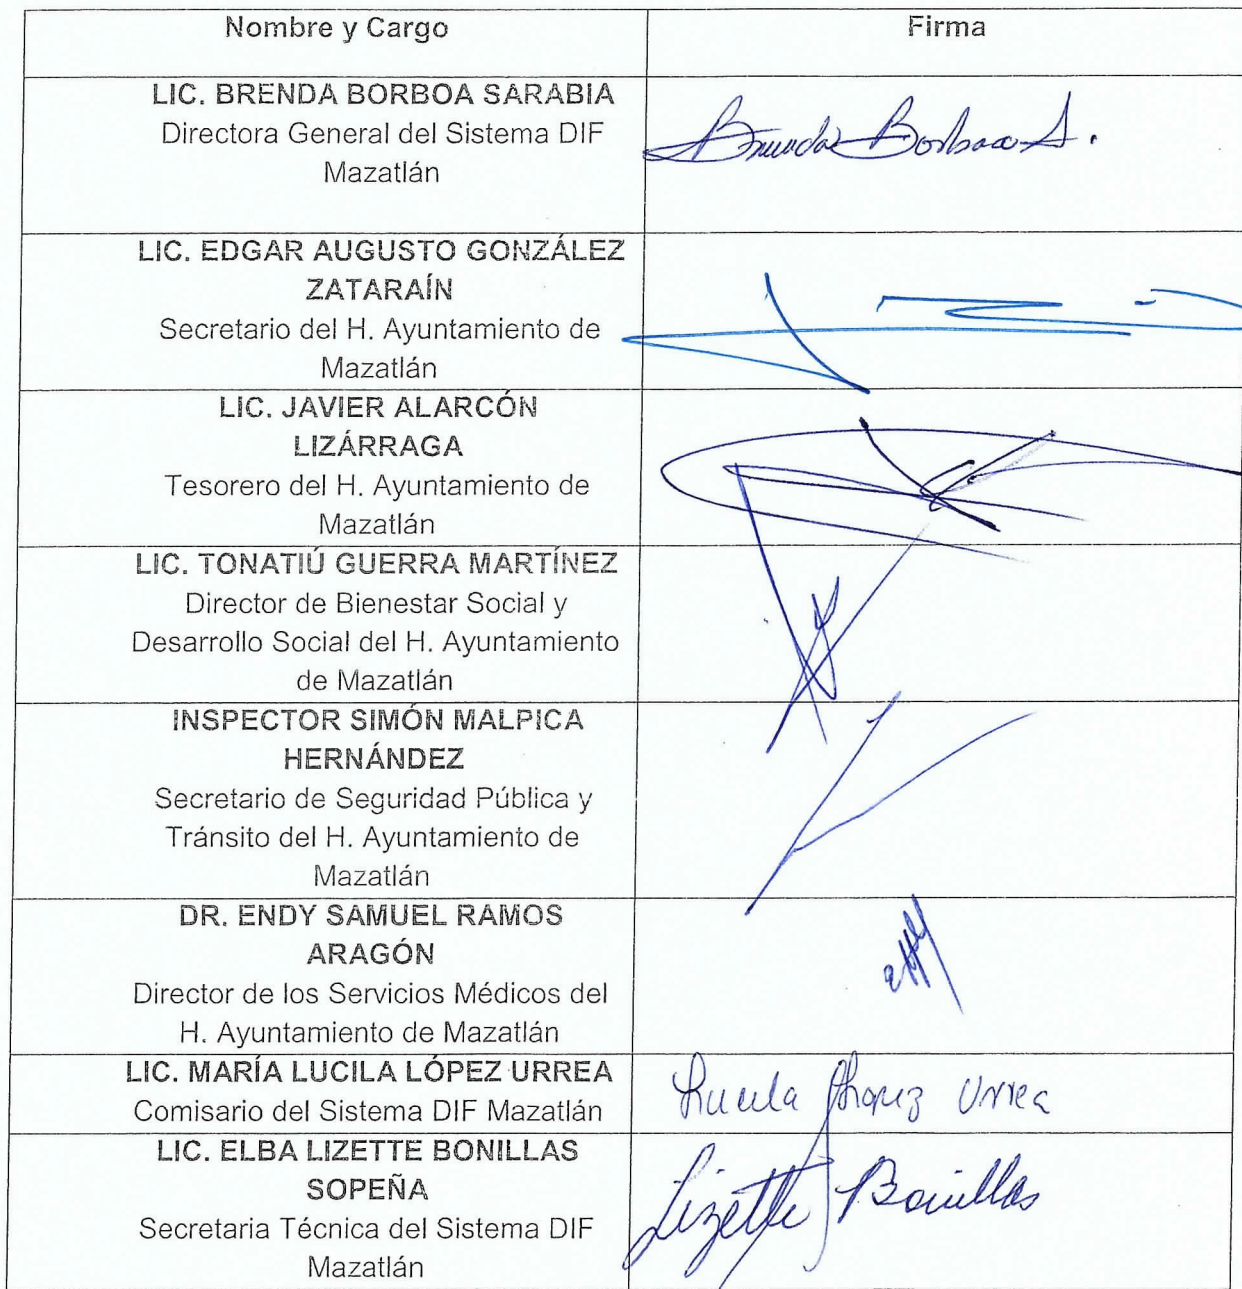 Nombre y Cargo
Firma
LIC. BRENDA BORBOA SARABIA
Directora General del Sistema DIF
Mazatlán
Brenda Borboa S.
LIC. EDGAR AUGUSTO GONZÁLEZ
ZATARAÍN
Secretario del H. Ayuntamiento de
Mazatlán
LIC. JAVIER ALARCÓN
LIZÁRRAGA
Tesorero del H. Ayuntamiento de
Mazatlán
LIC. TONATIÚ GUERRA MARTÍNEZ
Director de Bienestar Social y
Desarrollo Social del H. Ayuntamiento
de Mazatlán
INSPECTOR SIMÓN MALPICA
HERNÁNDEZ
Secretario de Seguridad Pública y
Tránsito del H. Ayuntamiento de
Mazatlán
DR. ENDY SAMUEL RAMOS
ARAGÓN
Director de los Servicios Médicos del
H. Ayuntamiento de Mazatlán
LIC. MARÍA LUCILA LÓPEZ URREA
Comisario del Sistema DIF Mazatlán
Lucila López Urrea
LIC. ELBA LIZETTE BONILLAS
SOPEÑA
Secretaria Técnica del Sistema DIF
Mazatlán
Lizette Bonillas